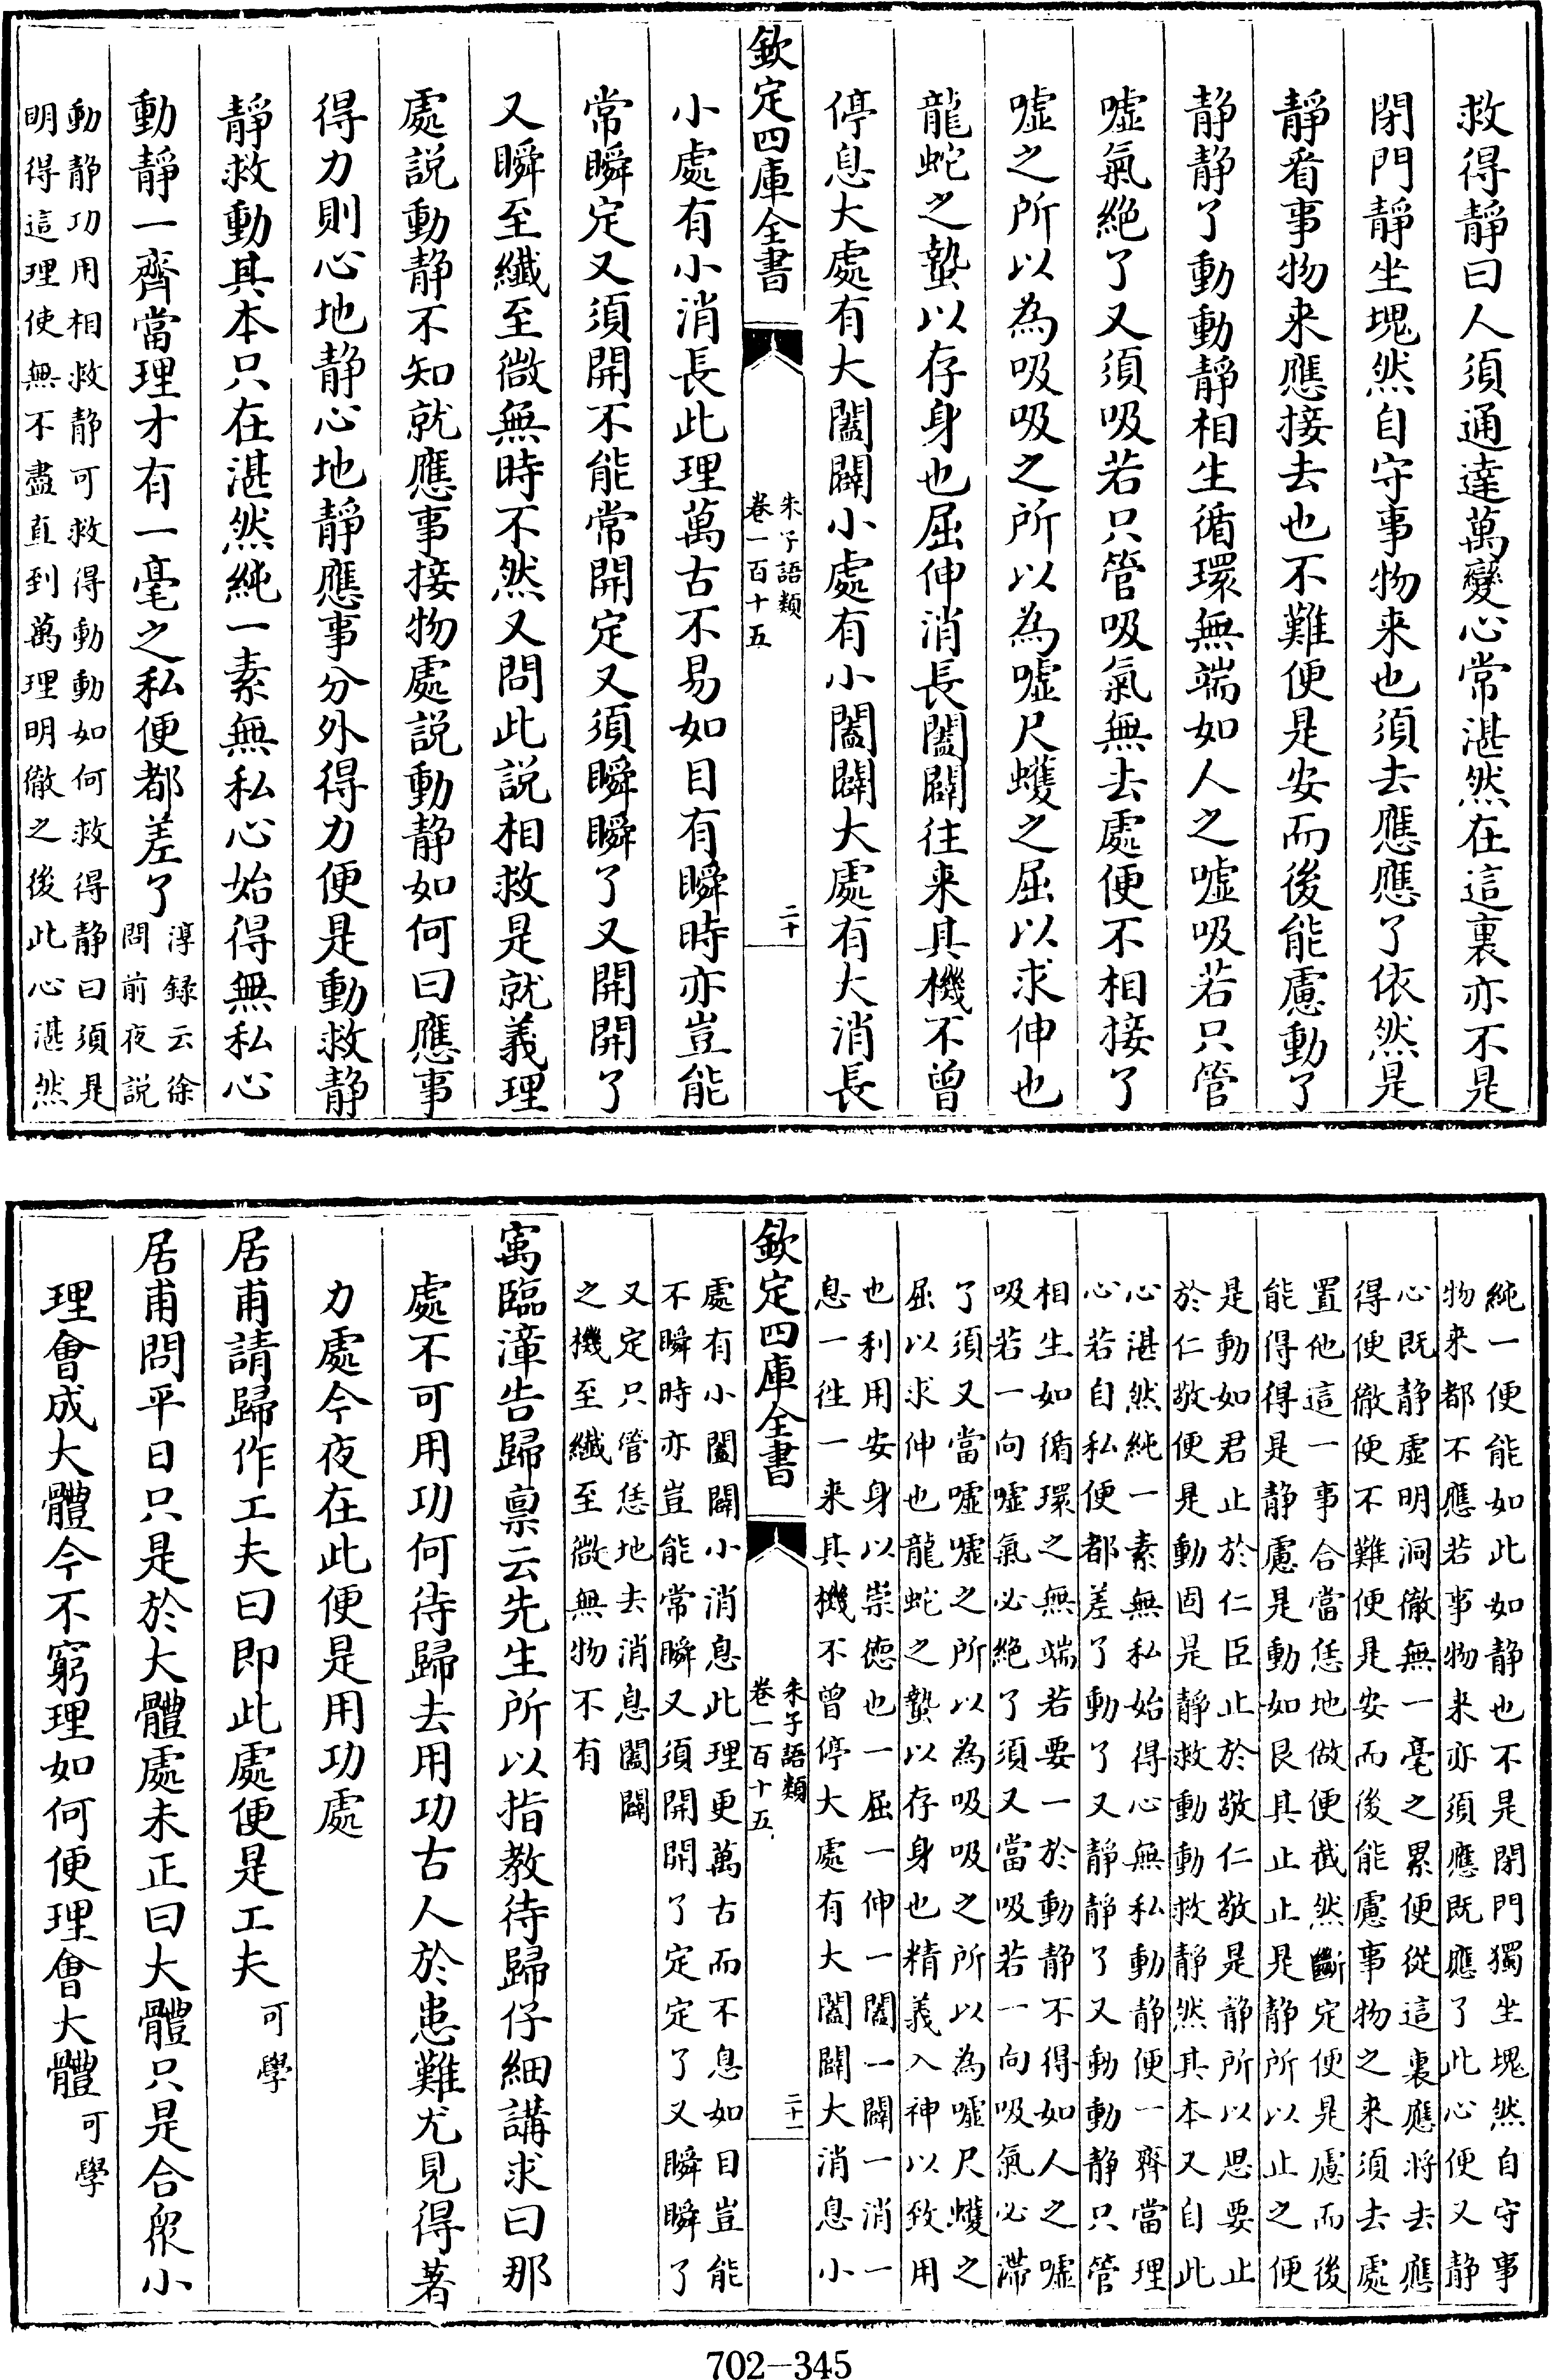 救得靜曰人須通達萬變心常湛然在這裏亦不是
閉門靜坐塊然自守事物来也須去應應了依然是
靜看事物来應接去也不難便是安而後能慮動了
静静了動動静相生循環無端如人之嘘吸若只管
嘘氣絶了又須吸若只管吸氣無去處便不相接了
嘘之所以為吸吸之所以為嘘尺蠖之屈以求伸也
龍蛇之蟄以存身也屈伸消長闔闢往来其機不曾
停息大處有大闔闢小處有小闔闢大處有大消長
欽定四庫全書
朱子語類
卷一百十五
二十
小處有小消長此理萬古不易如目有瞬時亦豈能
常瞬定又須開不能常開定又須瞬瞬了又開開了
又瞬至纎至微無時不然又問此說相救是就義理
處説動静不知就應事接物處說動静如何曰應事
得力則心地静心地靜應事分外得力便是動救静
靜救動其本只在湛然純一素無私心始得無私心
動靜一齊當理才有一毫之私便都差了
淳録云徐
問前夜説
動静功用相救静可救得動動如何救得静曰須是
明得這理使無不盡直到萬理明徹之後此心湛然
純一便能如此如静也不是閉門獨坐塊然自守事
物来都不應若事物来亦須應既應了此心便又静
心既静虚明洞徹無一毫之累便從這裏應將去應
得便徹便不難便是安而後能慮事物之来須去處
置他這一事合當恁地做便截然斷定便是慮而後
能得得是静慮是動如艮其止止是静所以止之便
是動如君止於仁臣止於敬仁敬是静所以思要止
於仁敬便是動固是静救動動救静然其本又自此
心湛然純一素無私始得心無私動静便一齊當理
心若自私便都差了動了又静静了又動動静只管
相生如循環之無端若要一於動静不得如人之嘘
吸若一向嘘氣必絶了須又當吸若一向吸氣必滯
了須又當嘘嘘之所以為吸吸之所以為嘘尺蠖之
屈以求伸也龍蛇之蟄以存身也精義入神以致用
也利用安身以崇德也一屈一伸一闔一闢一消一
息一往一来其機不曾停大處有大闔闢大消息小
欽定四庫全書
朱子語類
卷一百十五
二十一
處有小闔闢小消息此理更萬古而不息如目豈能
不瞬時亦豈能常瞬又須開開了定定了又瞬瞬了
又定只管恁地去消息闔闢
之機至纎至微無物不有
寓臨漳告歸禀云先生所以指教待歸仔細講求曰那
處不可用功何待歸去用功古人於患難尤見得著
力處今夜在此便是用功處
居甫請歸作工夫曰即此處便是工夫
可學
居甫問平日只是於大體處未正曰大體只是合衆小
理會成大體今不窮理如何便理會大體
可學
702—345